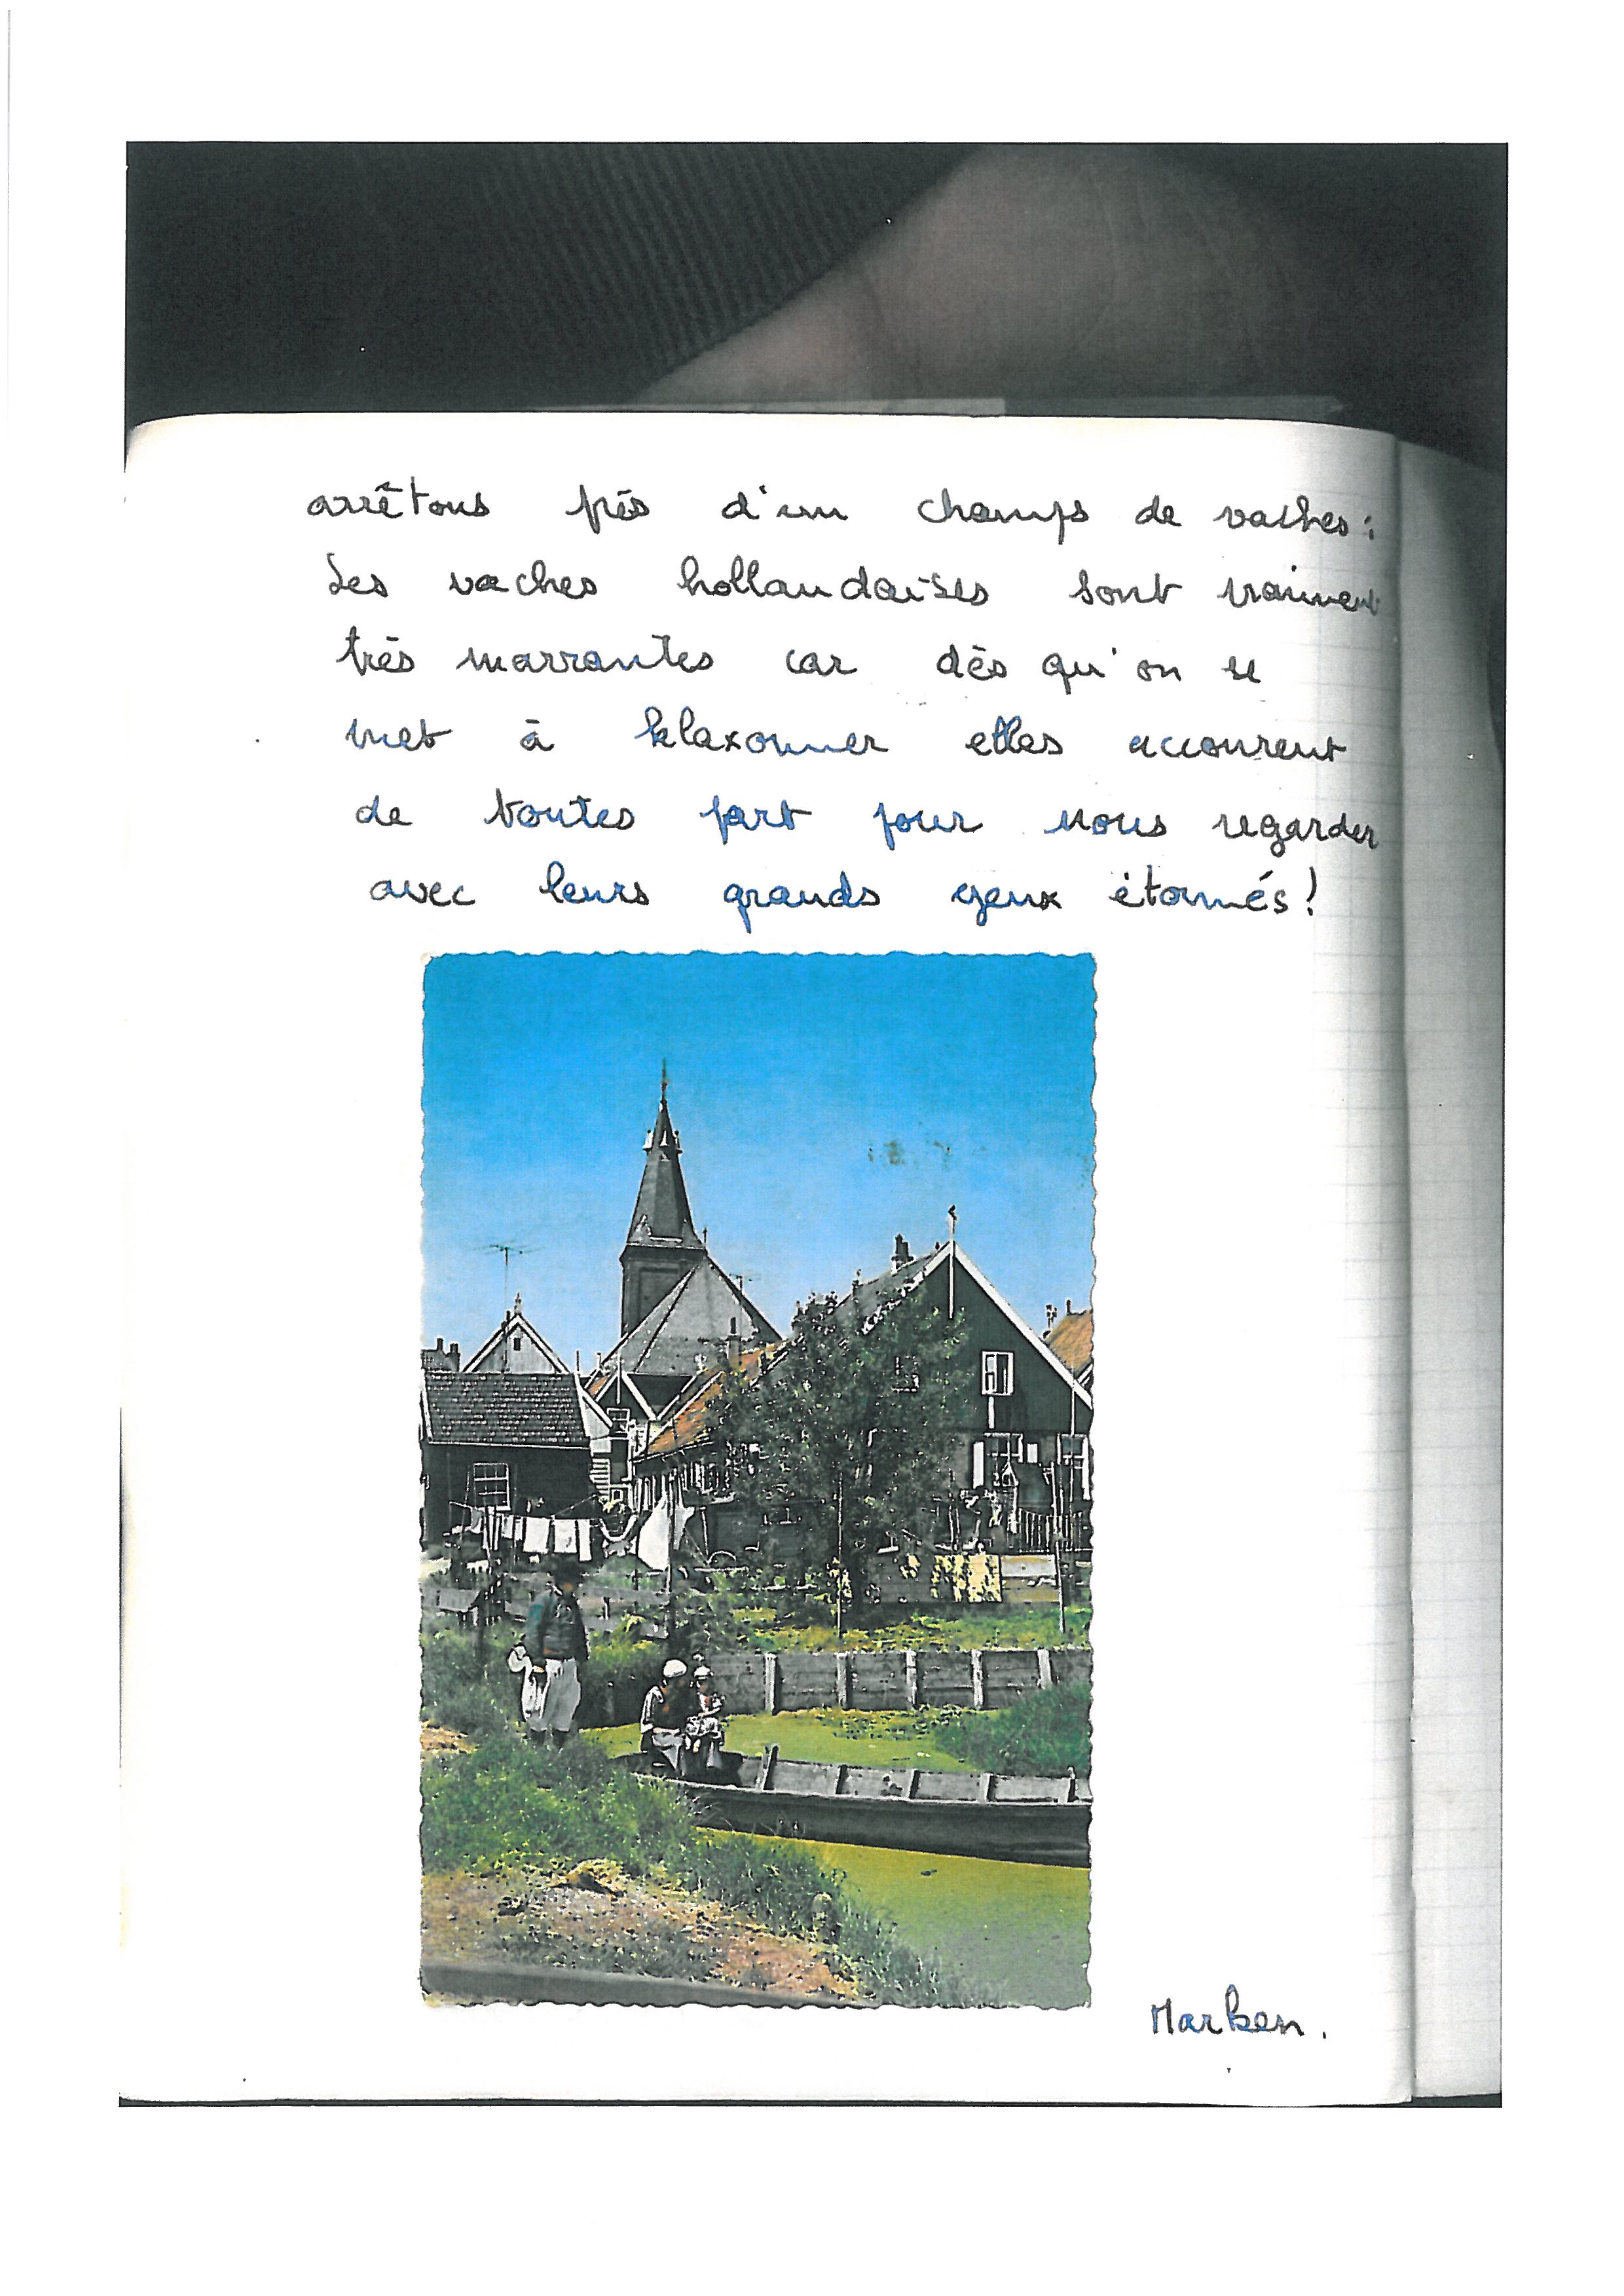 arrêtons près d'un champs de vaches:
Les vaches hollandaises sont vraiment
très marrantes car dès qu'on se
met à klaxonner elles accourent
de toutes part pour nous regarder
avec leurs grands yeux étonnés!
Marken.